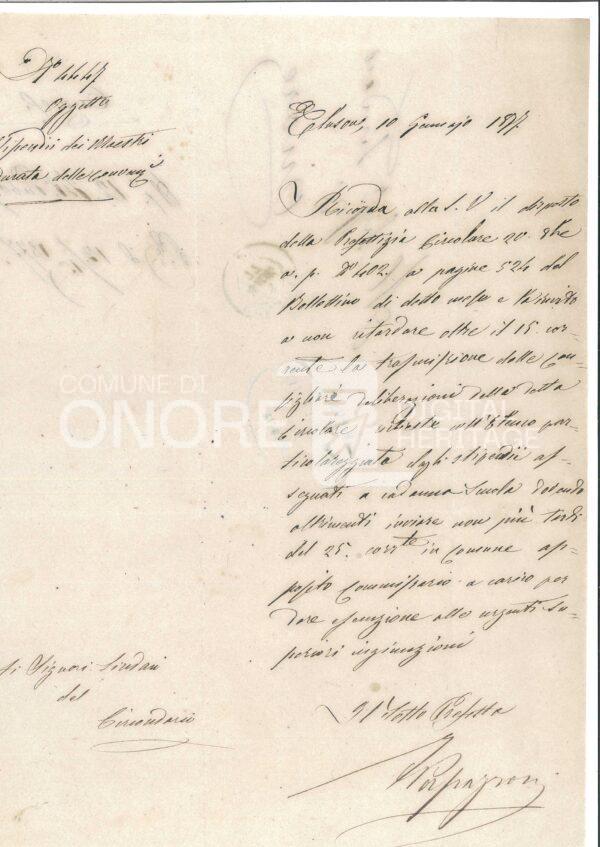 Oggetto
Stipendii dei Maestri
durata delle Convenz.i
Clusone, 10 Gennajo 1877.
Ricorda alla S. V. il disposto
della Prefettizia Circolare 20. 9bre
a. p. N° 402. a pagine 524 del
Bollettino di detto mese e l'invito
a non ritardare oltre il 15. cor-
rente la trasmissione delle Con-
sigliari deliberazioni della detta
Circolare coll'Elenco par-
ticolareggiato degli stipendii as-
segnati a cadauna Scuola dovendo
altrimenti inviare non più tardi
del 25. corrte in Comune ap-
posito Commissario a carico per
dare esecuzione alle urgenti su-
periori ingiunzioni
Il Sotto Prefetto
Ai Signori Sindaci
del
Circondario
COMUNE DI
ONORE
DIGITAL
HERITAGE